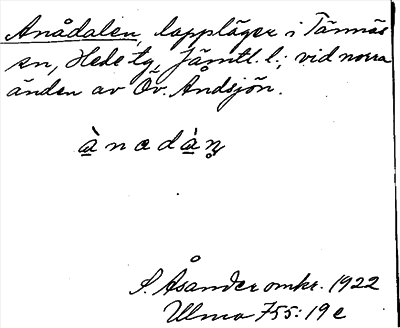 Anådalen, lappläger i Tännäs
sn, Hede tg, Jämtl. l.; vid norra
änden av Öv. Åndsjön.
ànadàn̥
S. Åsander omkr. 1922
Ulma 755:19e